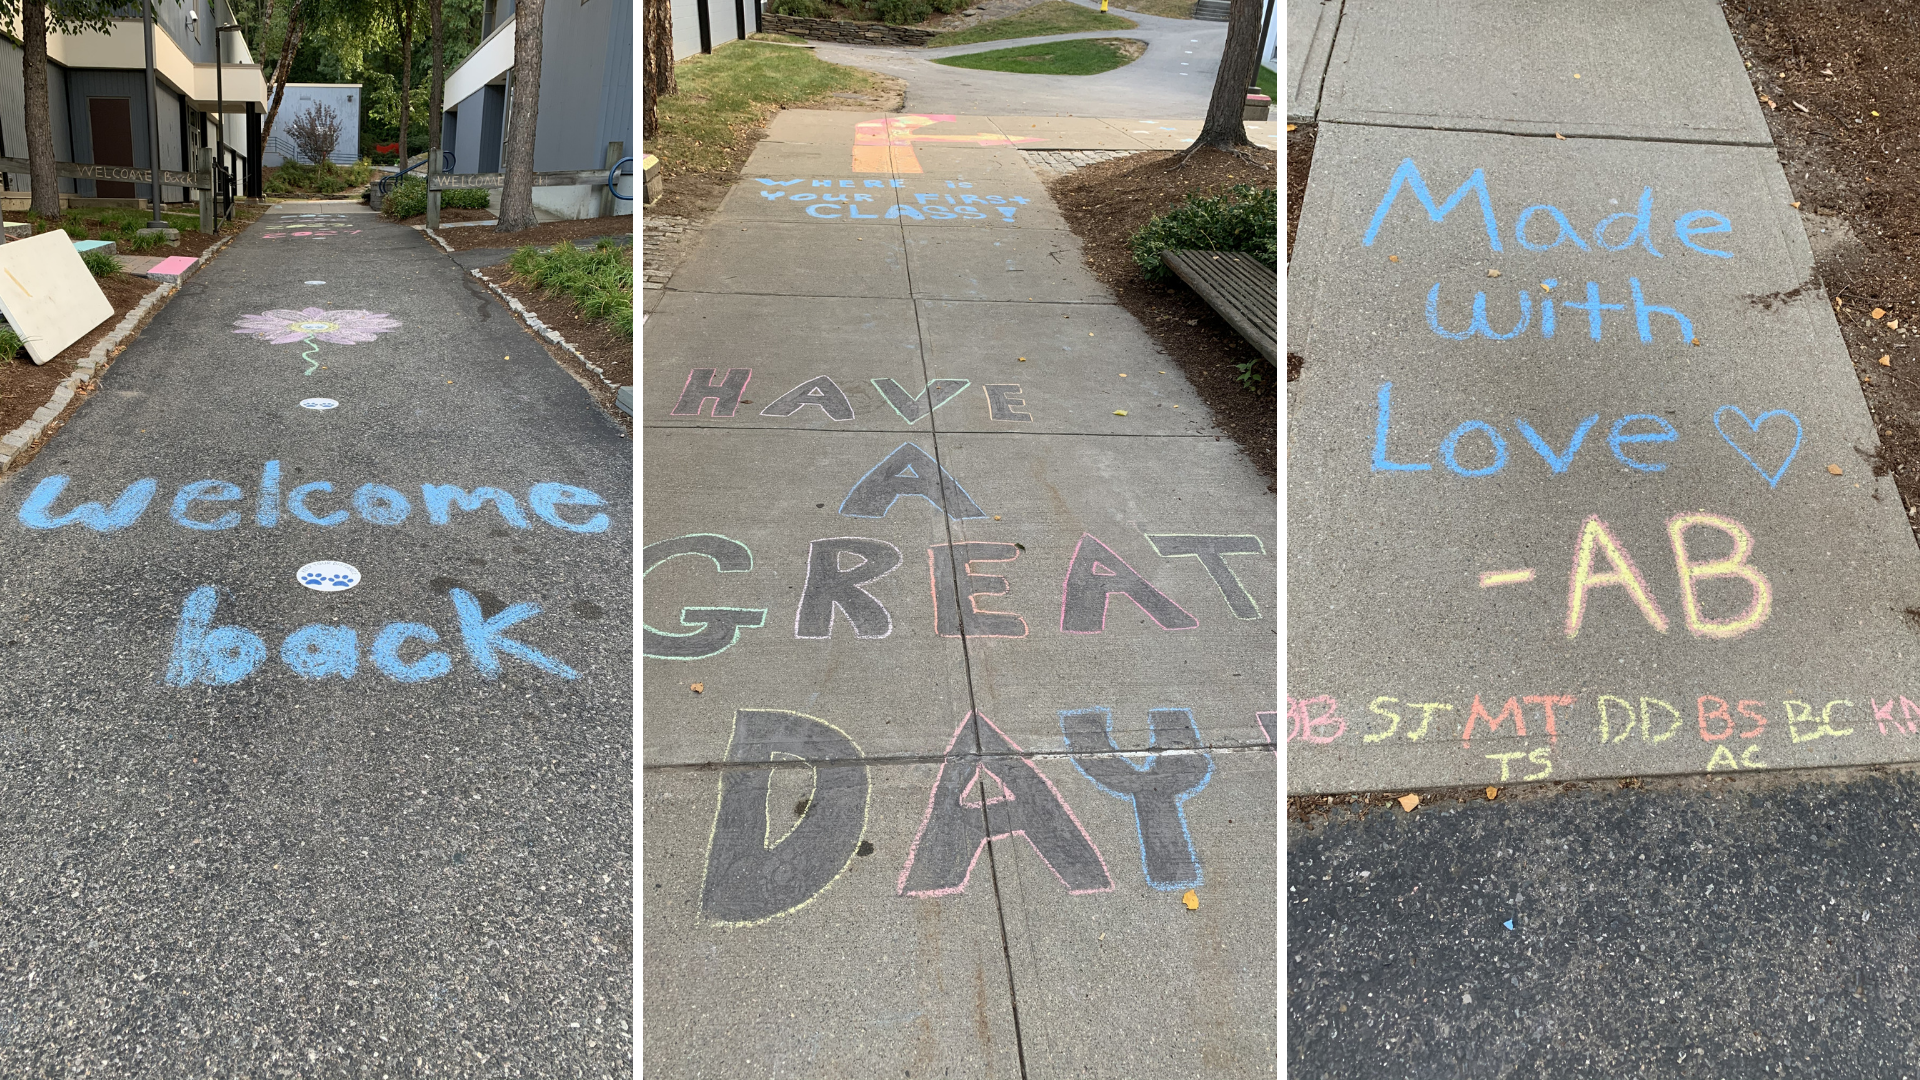 WELCOME Back!
WELCOME
welcome
back
WHERE IS
YOUR FIRST
CLASS?
HAVE
A
GREAT
DAY
Made
with
Love ♡
-AB
BB SJ MT DD BS BC KA
TS AC